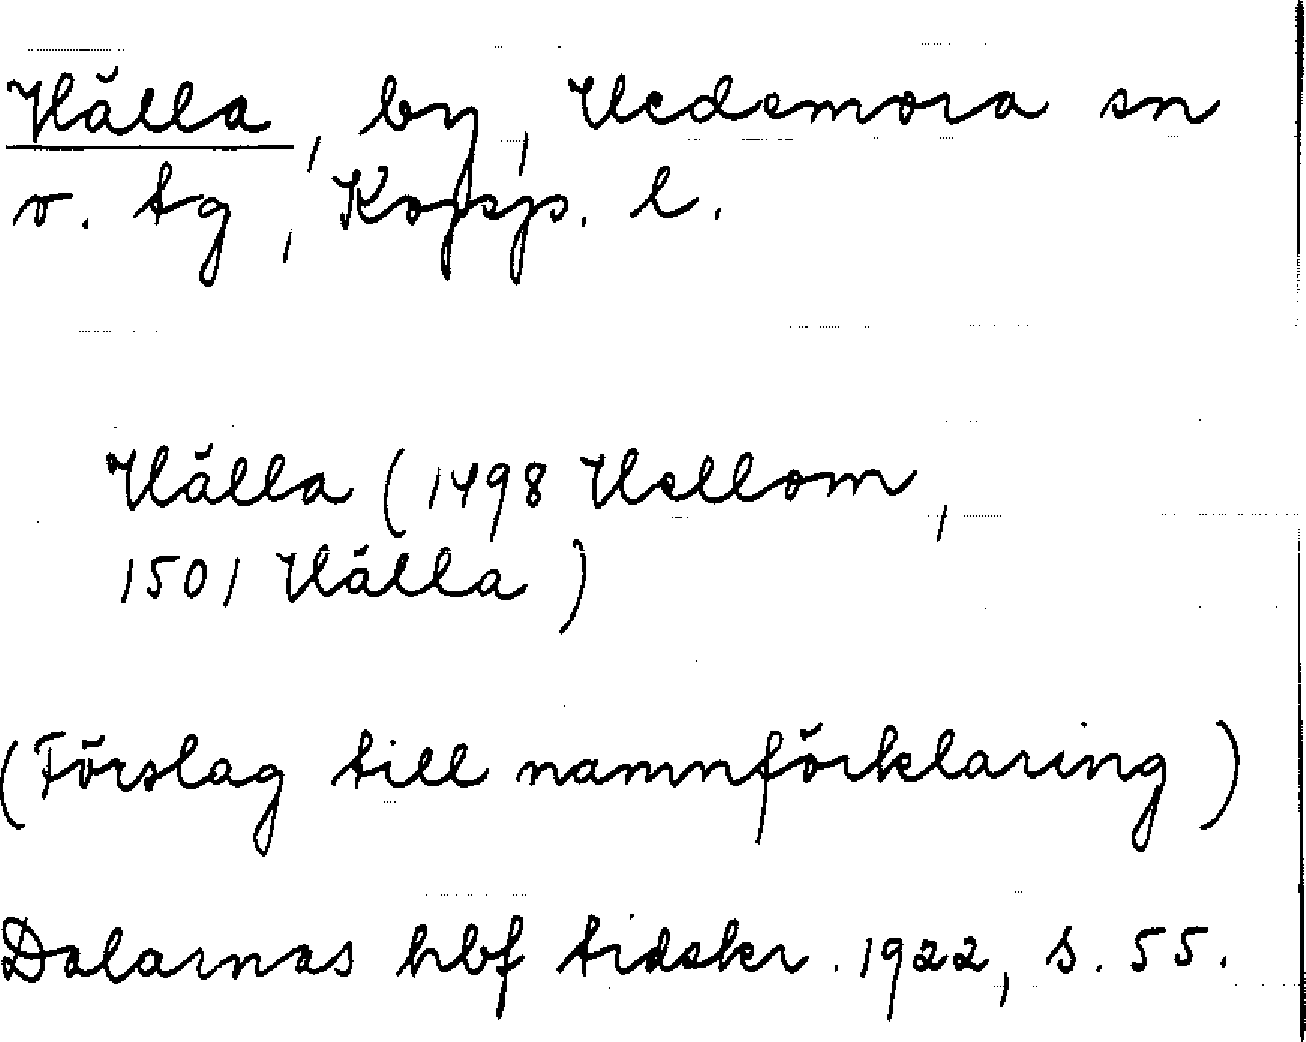 Hälla, by, Hedemora sn
o. tg, Kopp. l.
Hälla (1498 Hellom,
1501 Hälla)
(Förslag till namnförklaring)
Dalarnas hbf tidskr. 1922, s. 55.